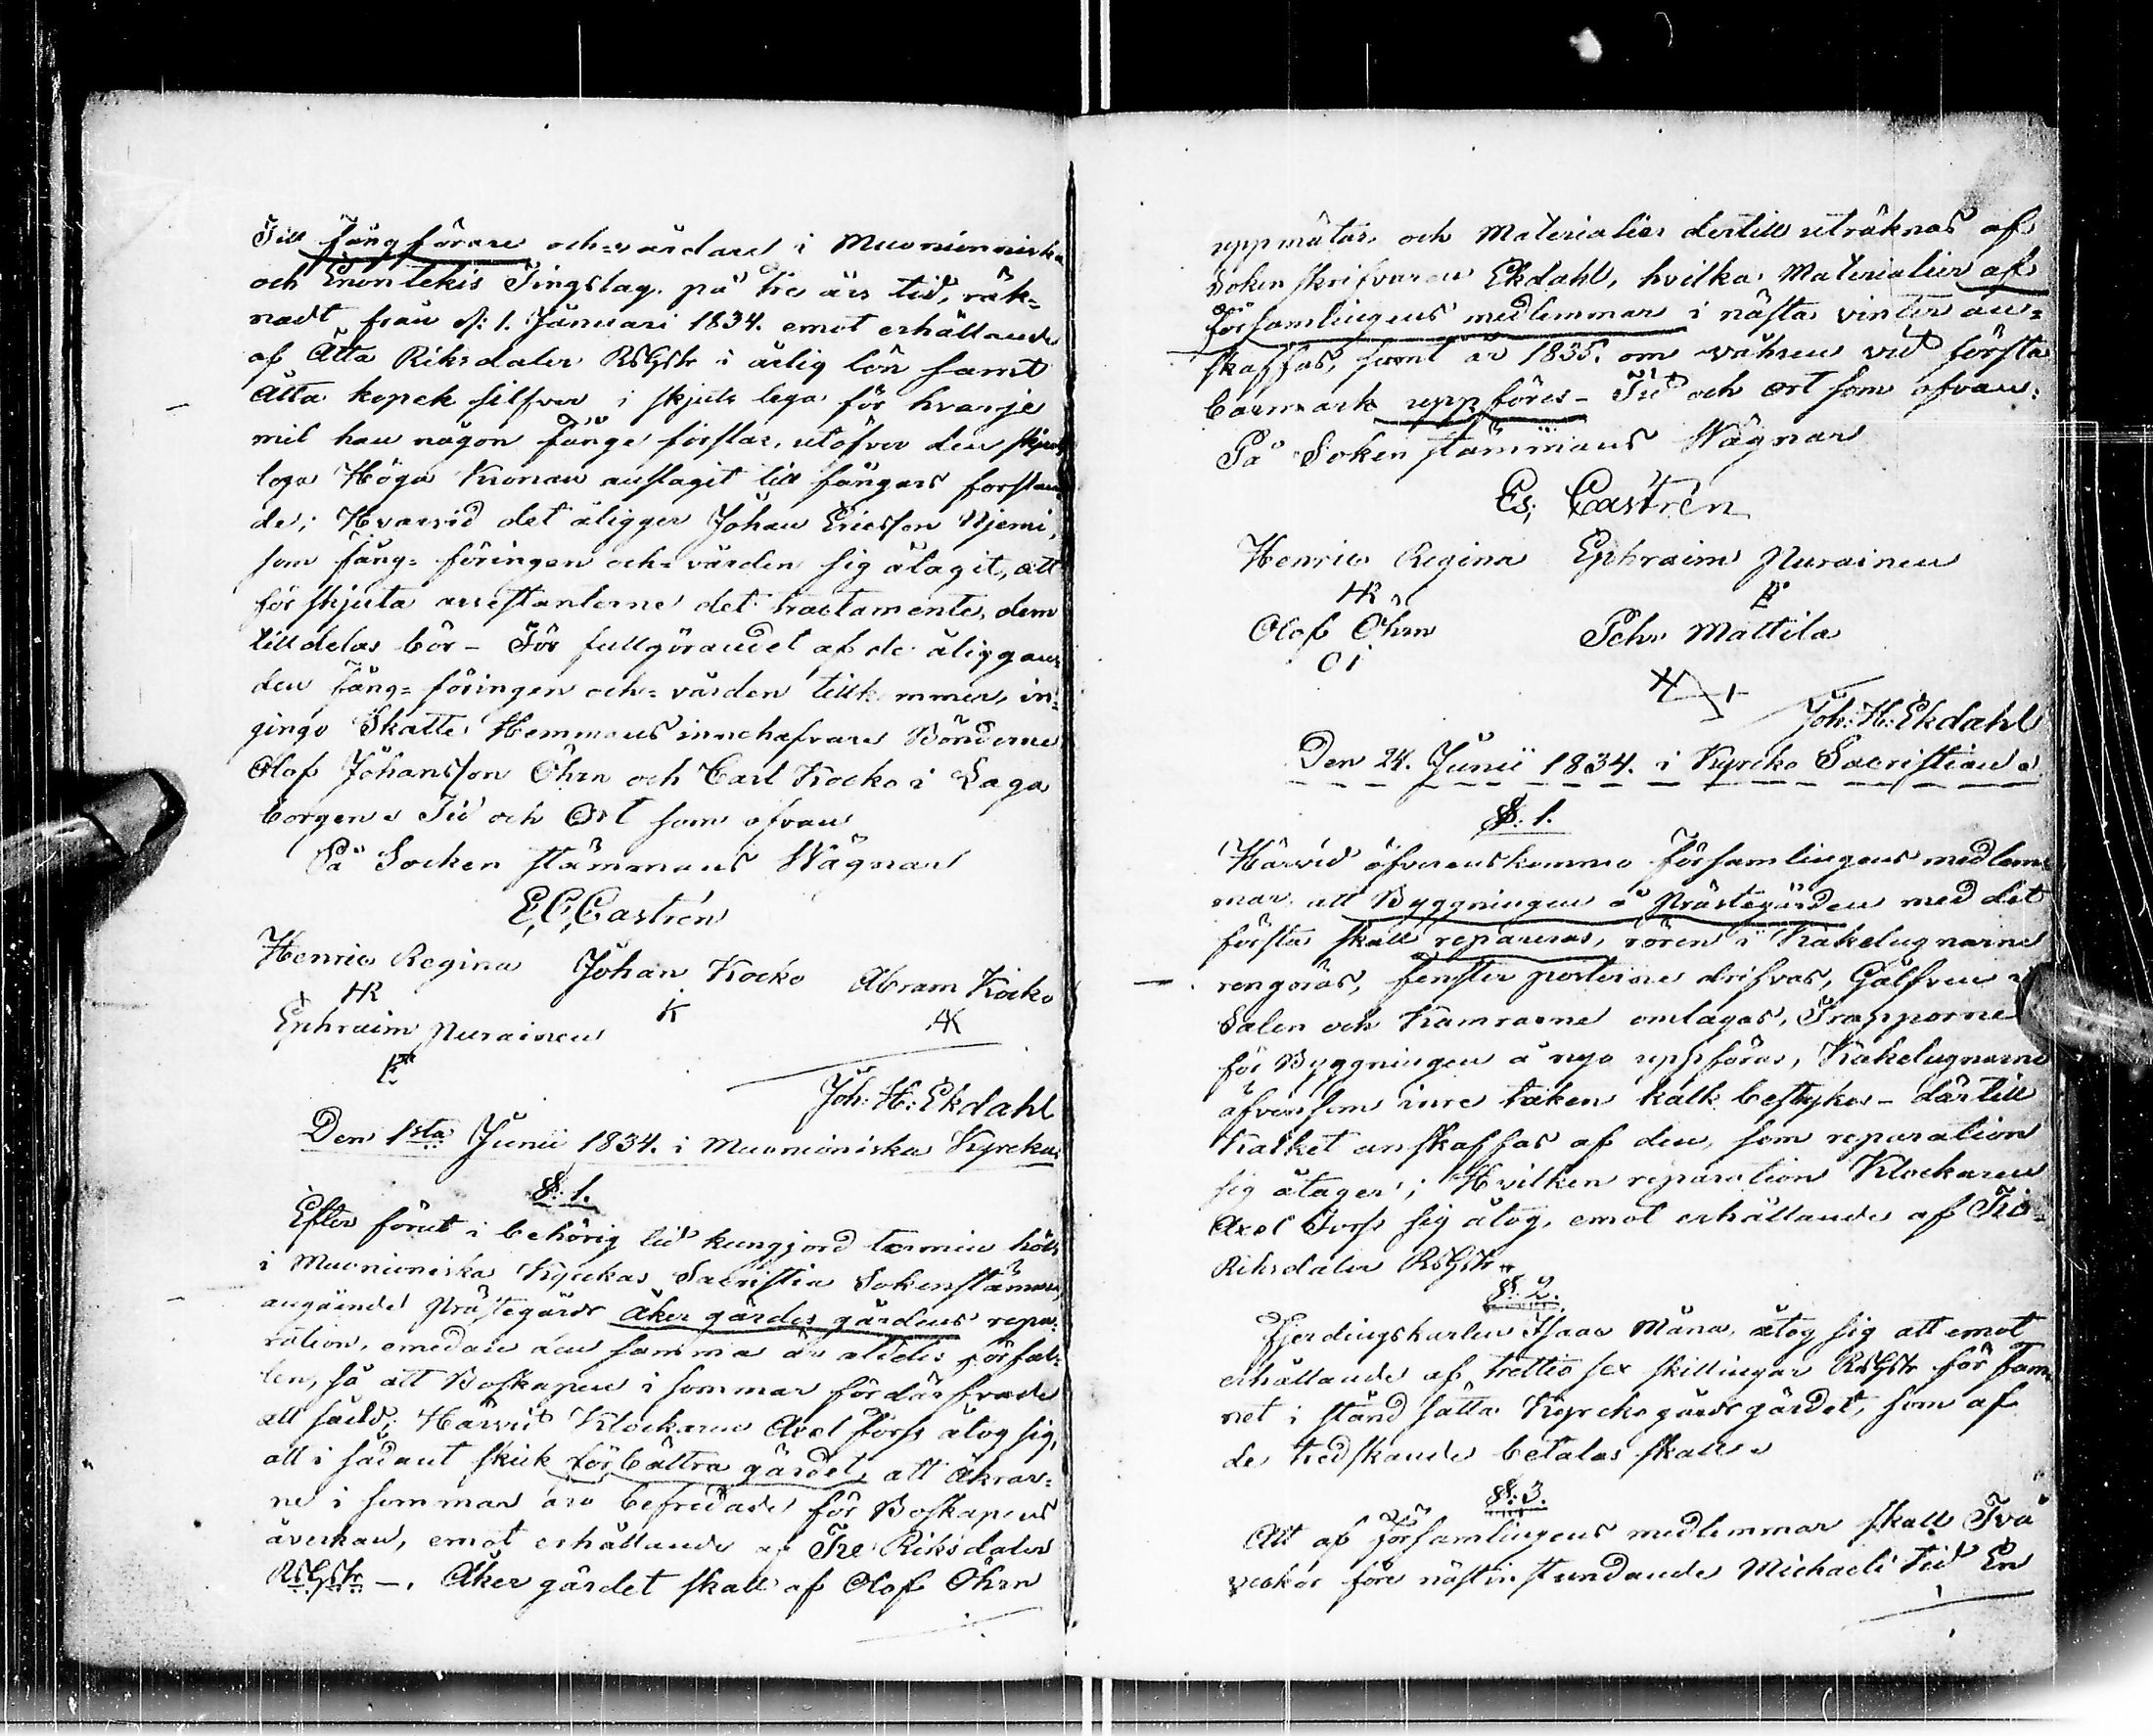 Till fångförare och=vårdare i Muonioniska
och Enontekis Tingslag på tre års tid, räk=
nadt från d: 1. Januari 1834. emot erhållande
af Åtta Riksdaler RsGstr i årlig lön samt
Åtta kopek silfver i skjuts lega för hvarje
mil han någon fånge förslar, utöfver den skjuts
lega Höga Kronan anslagit till fångars forslan=
de; Hvarvid det åligger Johan Ericsson Njemi,
som fång= föringen och=vården sig åtagit, att
förskjuta arrestanterne det tractamente, dem
tilldelas bör – För fullgörandet af de åliggan=
den fång= föringen och= vården tillkommer, in=
gingo Skatte Hemmans innehafvare Bönderne
Olof Johansson Öhrn och Carl Kocko i Laga
borgen. Tid och Ort som ofvan
På Socken stämmans Wägnar
E, C, Castrén
Henric Regina Johan Kocko Abram Kocko
HR K AK
Ephraim Purainen
EP
Joh: H: Ekdahl
Den 1sta Junii 1834. i Muonioniska Kyrcka
§: 1.
Efter förut i behörig tid kungjord termin hölls
i Muonioniska Kyrckas Sacristia Sokenstämma,
angående Prästegårds åker gärdes gårdens repa=
ration, emedan den samma är aldeles förfal=
len, så att Boskapen i sommar fördärfvade
all säd; Härvid Klockaren Axel Forss åtog sig,
att i sådant skick förbättra gärdet, att Åkrar=
ne i sommar äro befredade för Boskapens
åverkan, emot erhållande af Tre Riksdaler
RsGstr –. Åker gärdet skall af Olof Öhrn
uppmätas och Materialier dertill uträknas af
Sokenskrifvaren Ekdahl, hvilka Materialier af
församlingens medlemmar i nästa vinter an=
skaffas, samt år 1835. om våhren vid första
barmark uppföres – Tid och ort som ofvan:
På Sokenstämmans Wägnar
Es; Castrén
Henric Regina Ephraim Purainen
HR EP
Olof Öhrn Pehr Mattila
Joh: H: Ekdahl
Den 24. Junii 1834. i Kyrcko Sacristian
§: 1.
Härvid öfverenskommo församlingens medlem=
mar att Byggningen å Prästegården med det
första skall repareras, rören i Kakelugnarne
rengöras, fenster posterne drifvas, Gålfven i
Salen och Kamrarne omlagas, Trapporne
för Byggningen å nyo uppföras, Kakelugnarne
äfvensom inre taken kalk bestrykas – därtill
Kalket anskaffas af den, som reparation
sig åtager; Hvilken reparation Klockaren
Axel Forss sig åtog, emot erhållande af Tio
Riksdaler RsGstr
§: 2.
Fjerdingskarlen Isaac Måna, åtog sig att emot
erhållande af trettio sex skillingar RsGstr för fam=
net i stånd sätta Kyrckogårds gärdet, som af
de tredskande betalas skall
§: 3.
Att af församlingens medlemmar skall Två
veckor före nästinstundande Michaeli tid En